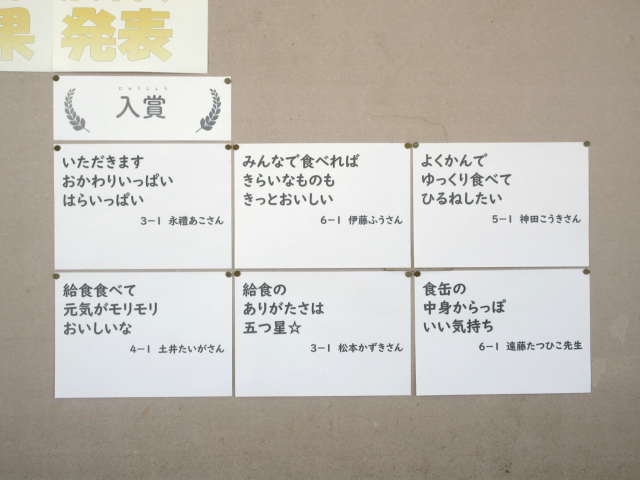 果 発表
にゅうしょう
入賞
いただきます
おかわりいっぱい
はらいっぱい
3-1 永禮あこさん
みんなで食べれば
きらいなものも
きっとおいしい
6-1 伊藤ふうさん
よくかんで
ゆっくり食べて
ひるねしたい
5-1 神田こうきさん
給食食べて
元気がモリモリ
おいしいな
4-1 土井たいがさん
給食の
ありがたさは
五つ星☆
3-1 松本かずきさん
食缶の
中身からっぽ
いい気持ち
6-1 遠藤たつひこ先生